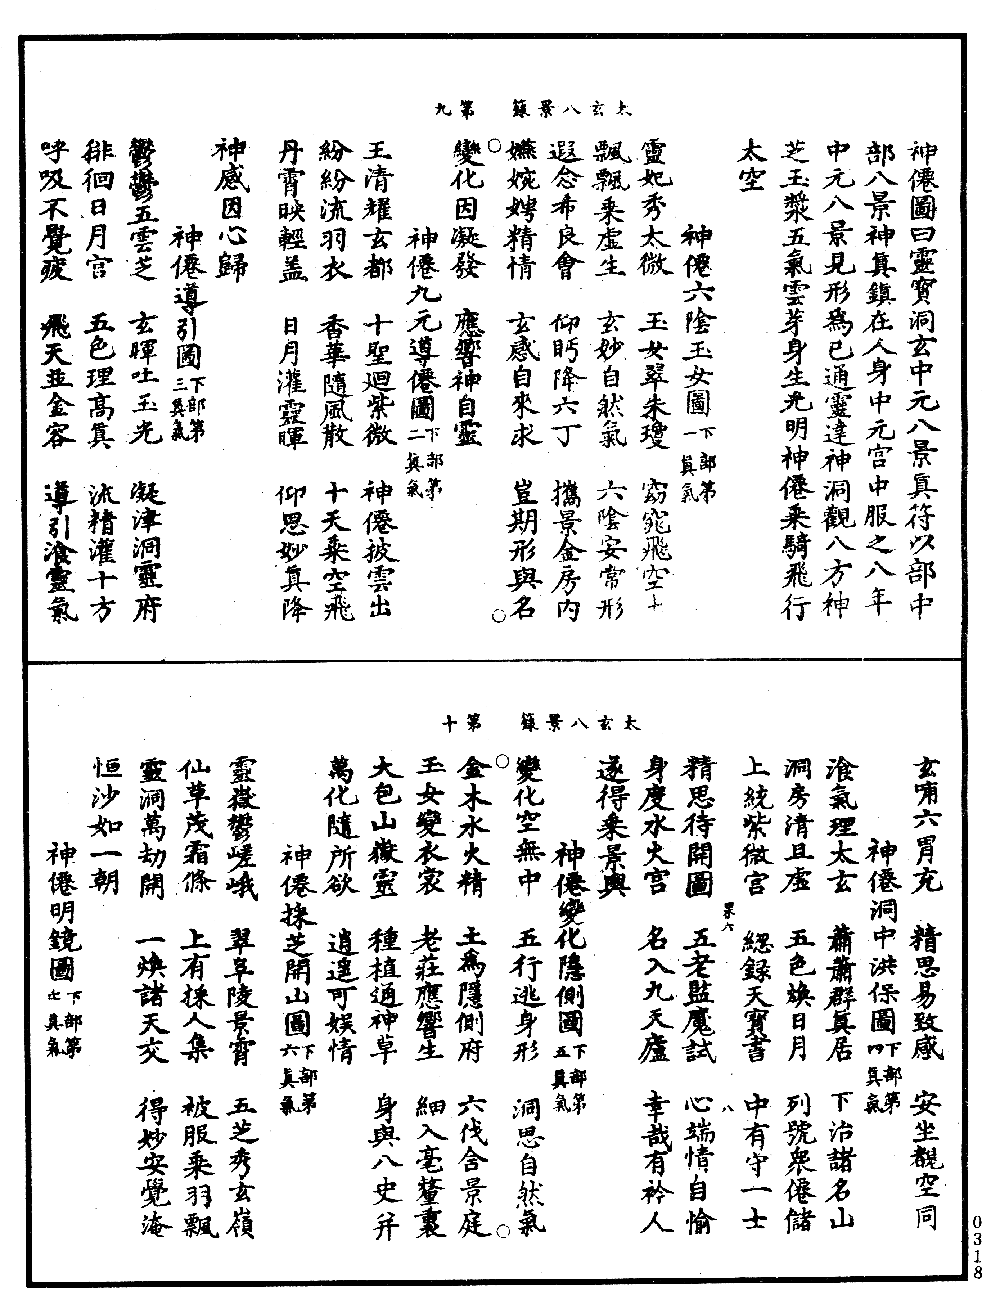 太玄八景籙　第九
神僊圖曰靈寶洞玄中元八景真符以部中
部八景神真鎮在人身中元宮中服之八年
中元八景見形為已通靈達神洞觀八方神
芝玉漿五氣雲芽身生光明神僊乘騎飛行
太空
神僊六陰玉女圖下部第一真氣
靈妃秀太微　玉女翠朱瓊　窈窕飛空十
飄飄乘虛生　玄妙自然氣　六陰安常形
遐念希良會　仰眄降六丁　攜景金房內
嬿婉娉精情　玄感自來求　豈期形與名
變化因凝發　應響神自靈
神僊九元導僊圖下部第二真氣
王清耀玄都　十聖迴紫微　神僊披雲出
紛紛流羽衣　香華隨風散　十天乘空飛
丹霄映輕蓋　日月灌靈暉　仰思妙真降
神感因心歸
神僊導引圖下部第三真氣
鬱鬱五雲芝　玄暉吐玉光　凝津洞靈府
徘徊日月宮　五色理高真　流精灌十方
呼吸不覺疲　飛天並金容　導引飡靈氣
太玄八景籙　第十
玄哺六胃充　精思易致感　安坐觀空同
神僊洞中洪保圖下部第四真氣
飡氣理太玄　蕭蕭群真居　下治諸名山
洞房清且虛　五色煥日月　列號眾僊儲
上統紫微宮　總錄天寶書　中有守一士
精思待開圖　五老監魔試　心端情自愉
身度水火宮　名入九天廬　幸哉有衿人
遂得乘景輿
神僊變化隱側圖下部第五真氣
變化空無中　五行逃身形　洞思自然氣
金木水火精　土為隱側府　六伐合景庭
玉女變衣裳　老莊應響生　細入毫釐裏
大包山嶽靈　種植通神草　身與八史并
萬化隨所欲　逍遥可娛情
神僊採芝開山圖下部第六真氣
靈嶽鬱嵯峨　翠阜陵景霄　五芝秀玄嶺
仙草茂霜條　上有採人集　被服乘羽飄
靈洞萬劫開　一煥諸天交　得妙安覺淹
恒沙如一朝
神僊明鏡圖下部第七真氣
罪六
八
0318